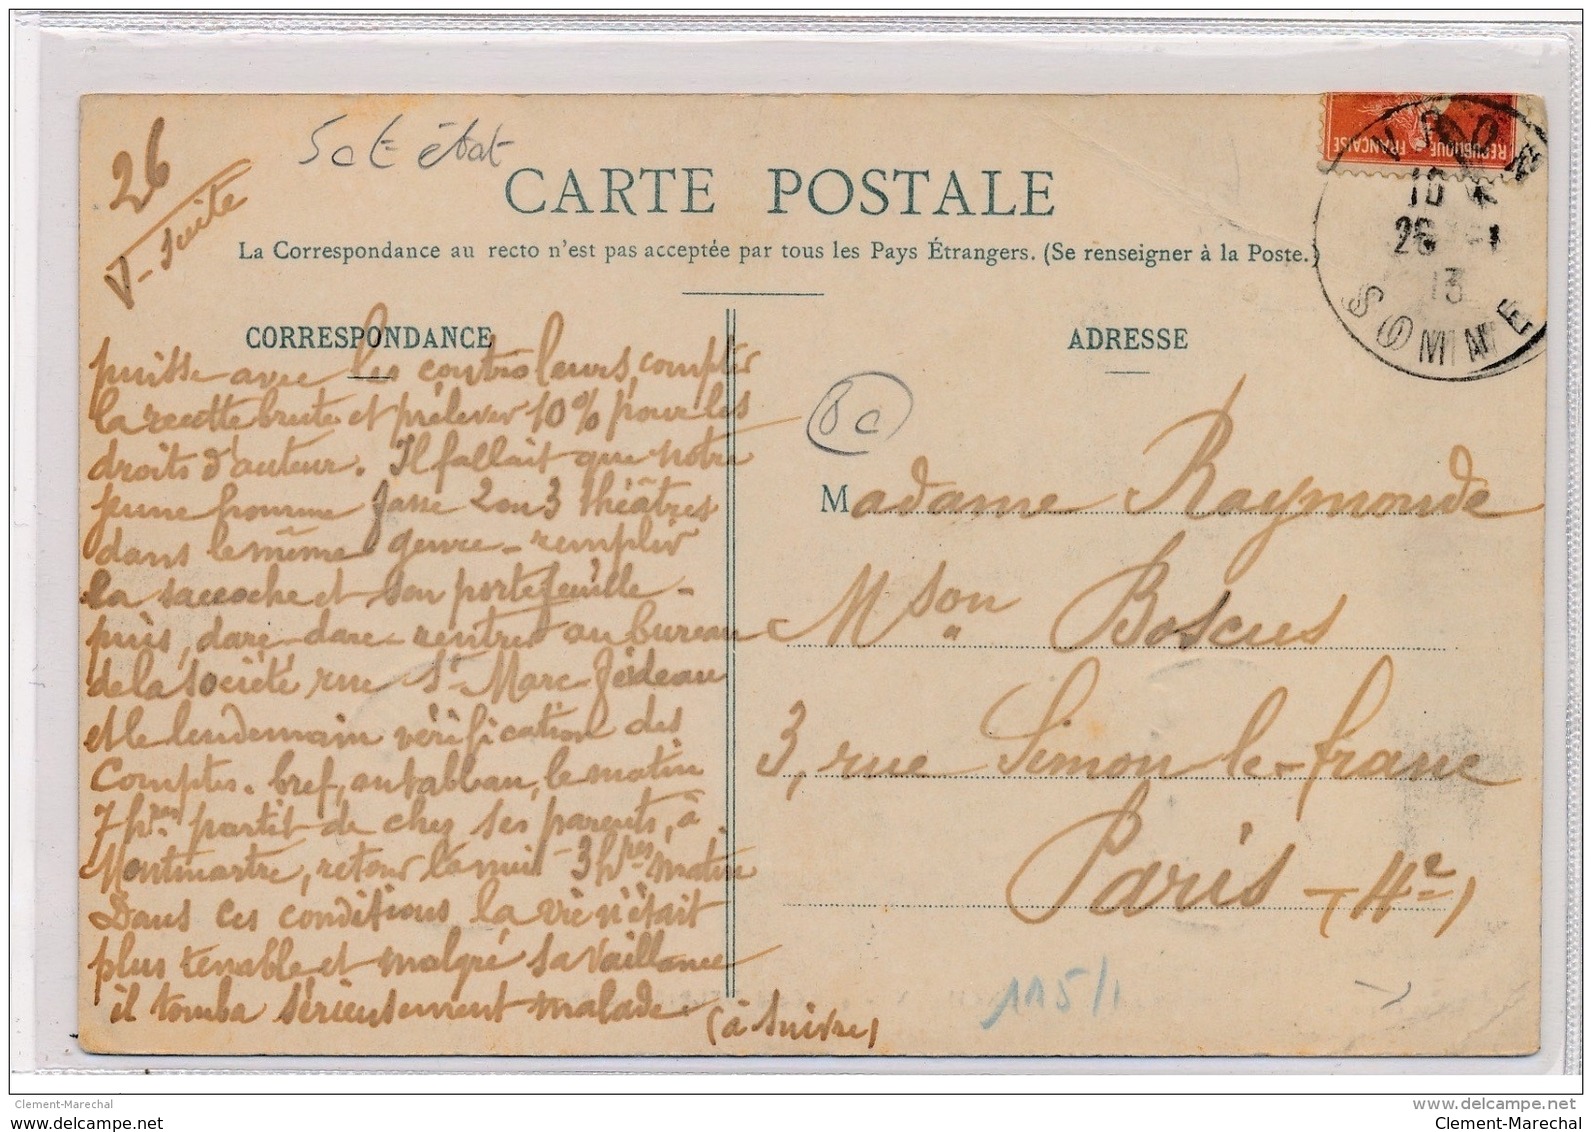 26
V-Suite
CARTE POSTALE
La Correspondance au recto n'est pas acceptée par tous les Pays Étrangers. (Se renseigner à la Poste.)
REPUBLIQUE FRANÇAISE
10
26 -1
13
SOMME
CORRESPONDANCE
puisse avec les controleurs, compter
la recette brute et prélever 10% pour les
droits d'auteur. Il fallait que notre
jeune homme fasse 2 ou 3 théâtres
dans le même genre - remplir
la sacoche et son portefeuille -
puis, dare-dare rentrer au bureau
de la Société, rue St-Marc-Feideau
et le lendemain vérification des
Comptes. bref, au tableau, le matin
7 hres partit de chez ses parents, à
Montmartre, retour la nuit 3 hres matin
Dans ces conditions la vie n'était
plus tenable et malgré sa vaillance
il tomba sérieusement malade.
(à suivre)
ADRESSE
Madame Raymonde
Mson Boscus
3, rue Simon-le-franc
Paris -(4e)
115/1
Clement-Marechal
www.delcampe.net
Clement-Marechal
Clement-Marechal